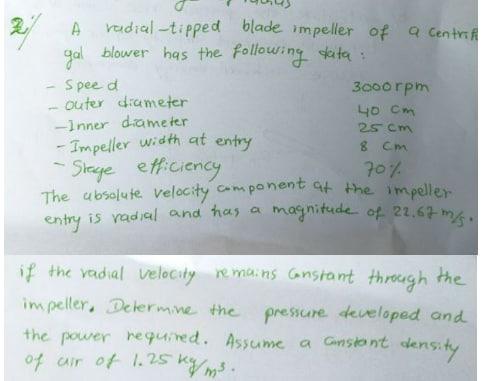 2/ A radial-tipped blade impeller of a centrif
gal blower has the following data :
- Speed 3000 rpm
- outer diameter 40 cm
- Inner diameter 25 cm
- Impeller width at entry 8 cm
- Stage efficiency 70%
The absolute velocity component at the impeller
entry is radial and has a magnitude of 22.67 m/s.
if the radial velocity remains constant through the
impeller. Determine the pressure developed and
the power required. Assume a constant density
of air of 1.25 kg/m³.